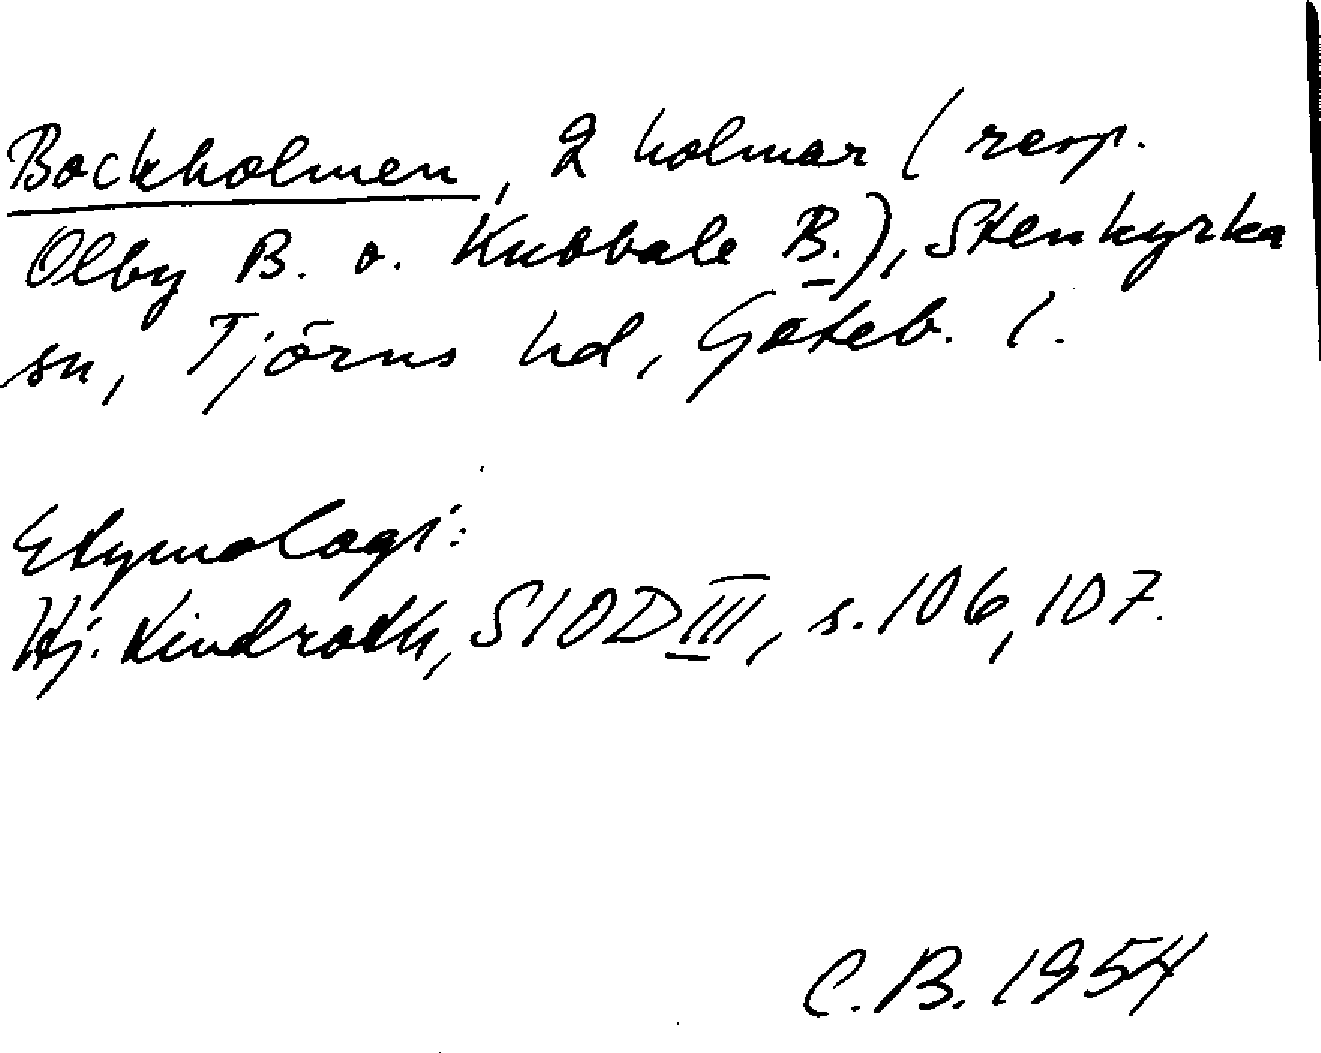 Bockholmen, 2 holmar (resp.
Olby B. o. Knobbale B.), Stenkyrka
sn, Tjörns hd, Göteb. l.
Etymologi:
Hj. Lindroth, SIOD III, s. 106, 107.
C.B. 1954